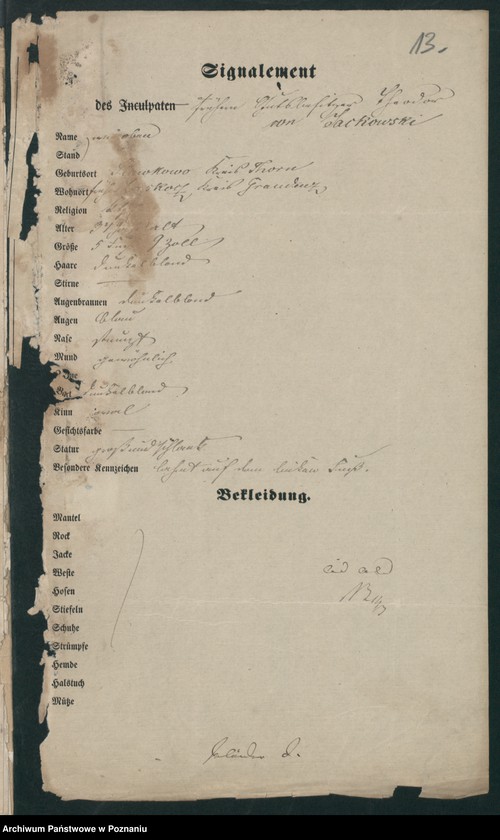 13.
Signalement
des Inculpaten frühern Gutsbesitzer Theodor
von Jackowski
Name wie oben
Stand
Geburtsort Kreis Thorn
Wohnort Kreis Graudenz
Religion
Alter alt
Größe 5 Fuß 9 Zoll
Haare dunkelblond
Stirne —
Augenbraunen dunkelblond
Augen blau
Nase stumpf
Mund gewöhnlich
Bart dunkelblond
Kinn oval
Gesichtsfarbe —
Statur groß und schlank
Besondere Kennzeichen lahmt auf dem linken Fuß.
Bekleidung.
Mantel
Rock
Jacke
Weste
ad acta
Hosen
Stiefeln
Schuhe
Strümpfe
Hemde
Halstuch
Mütze
Archiwum Państwowe w Poznaniu